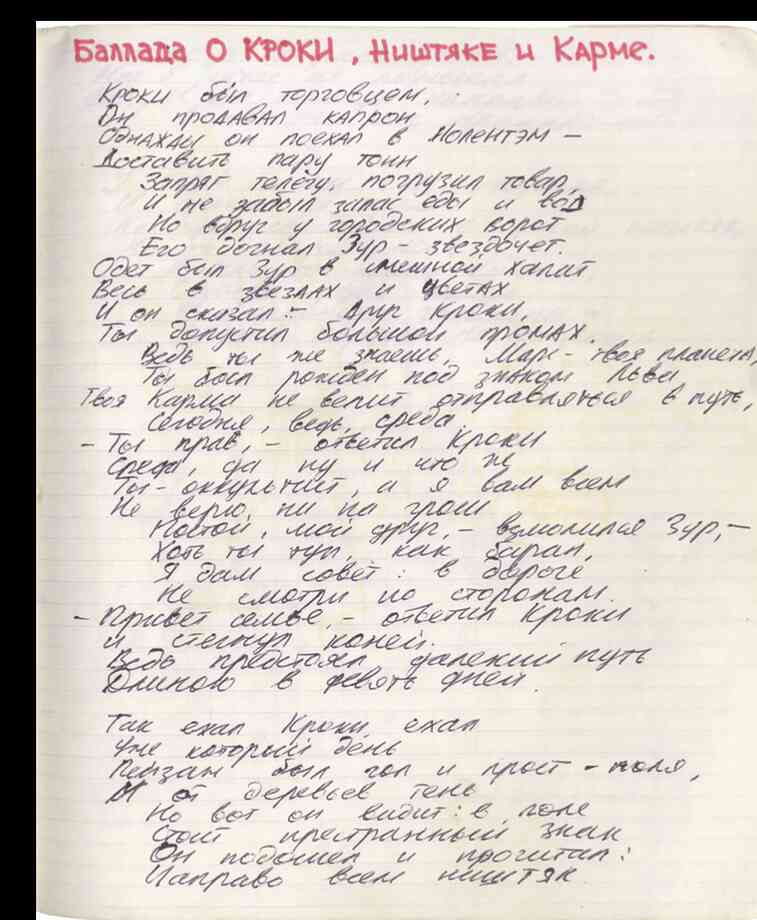 Баллада о Кроки, Ништяке и Карме.
Кроки был торговцем,
Он продавал капрон
Однажды он поехал в Нолентэм –
Доставить пару тонн
Запряг телегу, погрузил товар,
И не забыл запас еды и вод
Но вдруг у городских ворот
Его догнал Зур – звездочет.
Одет был Зур в смешной халат
Весь в звездах и цветах
И он сказал: – Друг Кроки,
Ты допустил большой промах.
Ведь ты же знаешь, Марс – твоя планета,
Ты был рожден под знаком Льва
Твоя Карма не велит отправляться в путь,
Сегодня, ведь, среда
– Ты прав, – ответил Кроки
Среда, да ну и что ж
Ты – оккультист, а я вам всем
Не верю, ни на грош
Постой, мой друг, – взмолился Зур, –
Хоть ты туп, как баран,
Я дам совет: в дороге
Не смотри по сторонам.
– Привет семье, – ответил Кроки
И стегнул коней.
Ведь предстоял далекий путь
Длиною в девять дней.
Так ехал Кроки, ехал
Уже который день
Пейзаж был гол и прост – поля,
И от деревьев тень
Но вот он видит: в поле
Стоит престранный знак
Он подошел и прочитал:
Направо всем ништяк